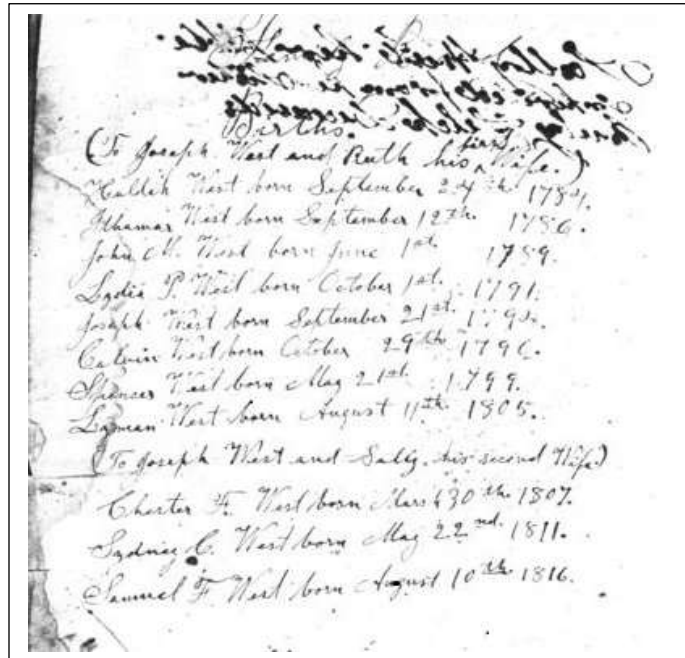 Births.
(To Joseph West and Ruth his first Wife.)
West born September 24th 1784.
Ithamar West born September 12th. 1786.
John M. West born June 1st 1789.
Lydia P. West born October 1st. 1791.
Joseph West born September 21st. 1794.
Calvin West born October 29th 1796.
Spencer West born May 21st 1799.
Lyman West born August 11th. 1805.
(To Joseph West and Sally. his second Wife.)
Chester F. West born March 30th. 1807.
Sydney C. West born May 22nd. 1811.
Samuel F. West born August 10th 1816.